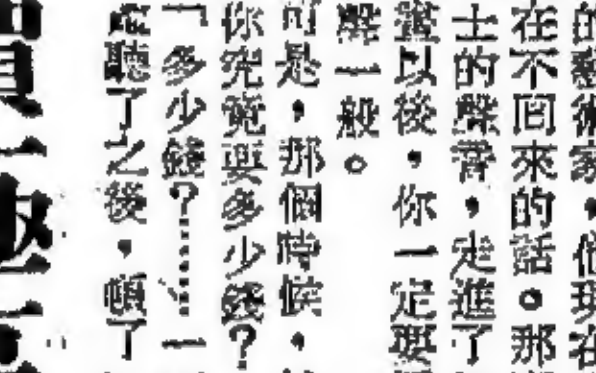 的藝術家,他現在
在不回來的話。那
士的聲音,走進了
聲以後,你一定要
聲一般。
可是,那個時候,
你究竟要多少錢?
「多少錢?……一
聽了之後,頓了